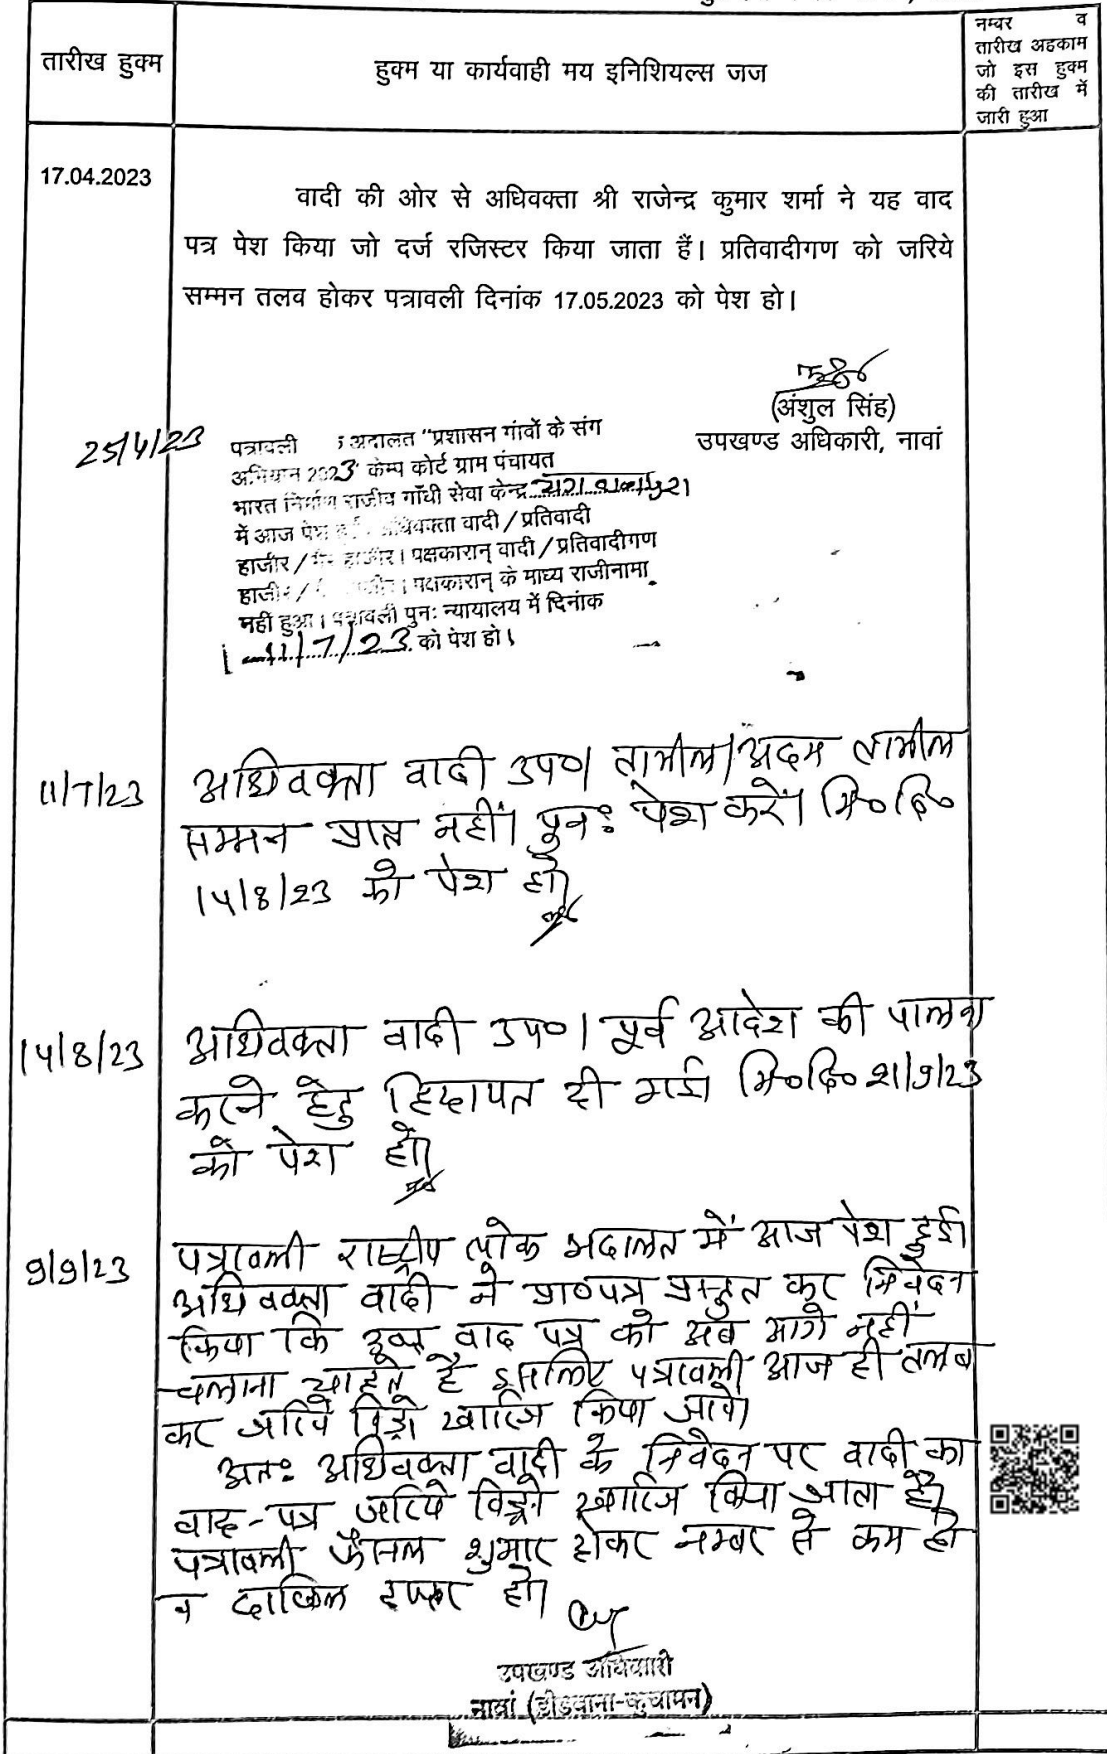 तारीख हुक्म
हुक्म या कार्यवाही मय इनिशियल्स जज
नम्बर व
तारीख अहकाम
जो इस हुक्म
की तारीख में
जारी हुआ
17.04.2023
वादी की ओर से अधिवक्ता श्री राजेन्द्र कुमार शर्मा ने यह वाद
पत्र पेश किया जो दर्ज रजिस्टर किया जाता हैं। प्रतिवादीगण को जरिये
सम्मन तलव होकर पत्रावली दिनांक 17.05.2023 को पेश हो।
(अंशुल सिंह)
उपखण्ड अधिकारी, नावां
25/4/23
पत्रावली अदालत "प्रशासन गांवों के संग
अभियान 2023" केम्प कोर्ट ग्राम पंचायत
भारत निर्माण राजीव गाँधी सेवा केन्द्र
में आज पेश हुई। अधिवक्ता वादी/प्रतिवादी
हाजीर/गैर हाजीर। पक्षकारान् वादी/प्रतिवादीगण
हाजीर/ पक्षकारान् के माध्य राजीनामा
नहीं हुआ। पत्रावली पुनः न्यायालय में दिनांक
11/7/23 को पेश हो।
11/7/23
अधिवक्ता वादी उप०। तामील/अदम तामील
सम्मन प्राप्त नहीं। पुनः पेश करें। मि०दि०
14/8/23 को पेश हो।
14/8/23
अधिवक्ता वादी उप०। पूर्व आदेश की पालना
करने हेतु हिदायत दी गई। मि०दि० 21/9/23
को पेश हो।
9/9/23
पत्रावली राष्ट्रीय लोक अदालत में आज पेश हुई।
अधिवक्ता वादी ने प्रा०पत्र प्रस्तुत कर निवेदन
किया कि उक्त वाद पत्र को अब आगे नहीं
चलाना चाहते है इसलिए पत्रावली आज ही तलब
कर जरिये विड्रो खारिज किया जावे।
अतः अधिवक्ता वादी के निवेदन पर वादी का
वाद-पत्र जरिये विड्रो खारिज किया जाता है।
पत्रावली फैसल शुमार होकर नम्बर से कम हो
व दाखिल दफ्तर हो।
उपखण्ड अधिकारी
नावां (डीडवाना-कुचामन)